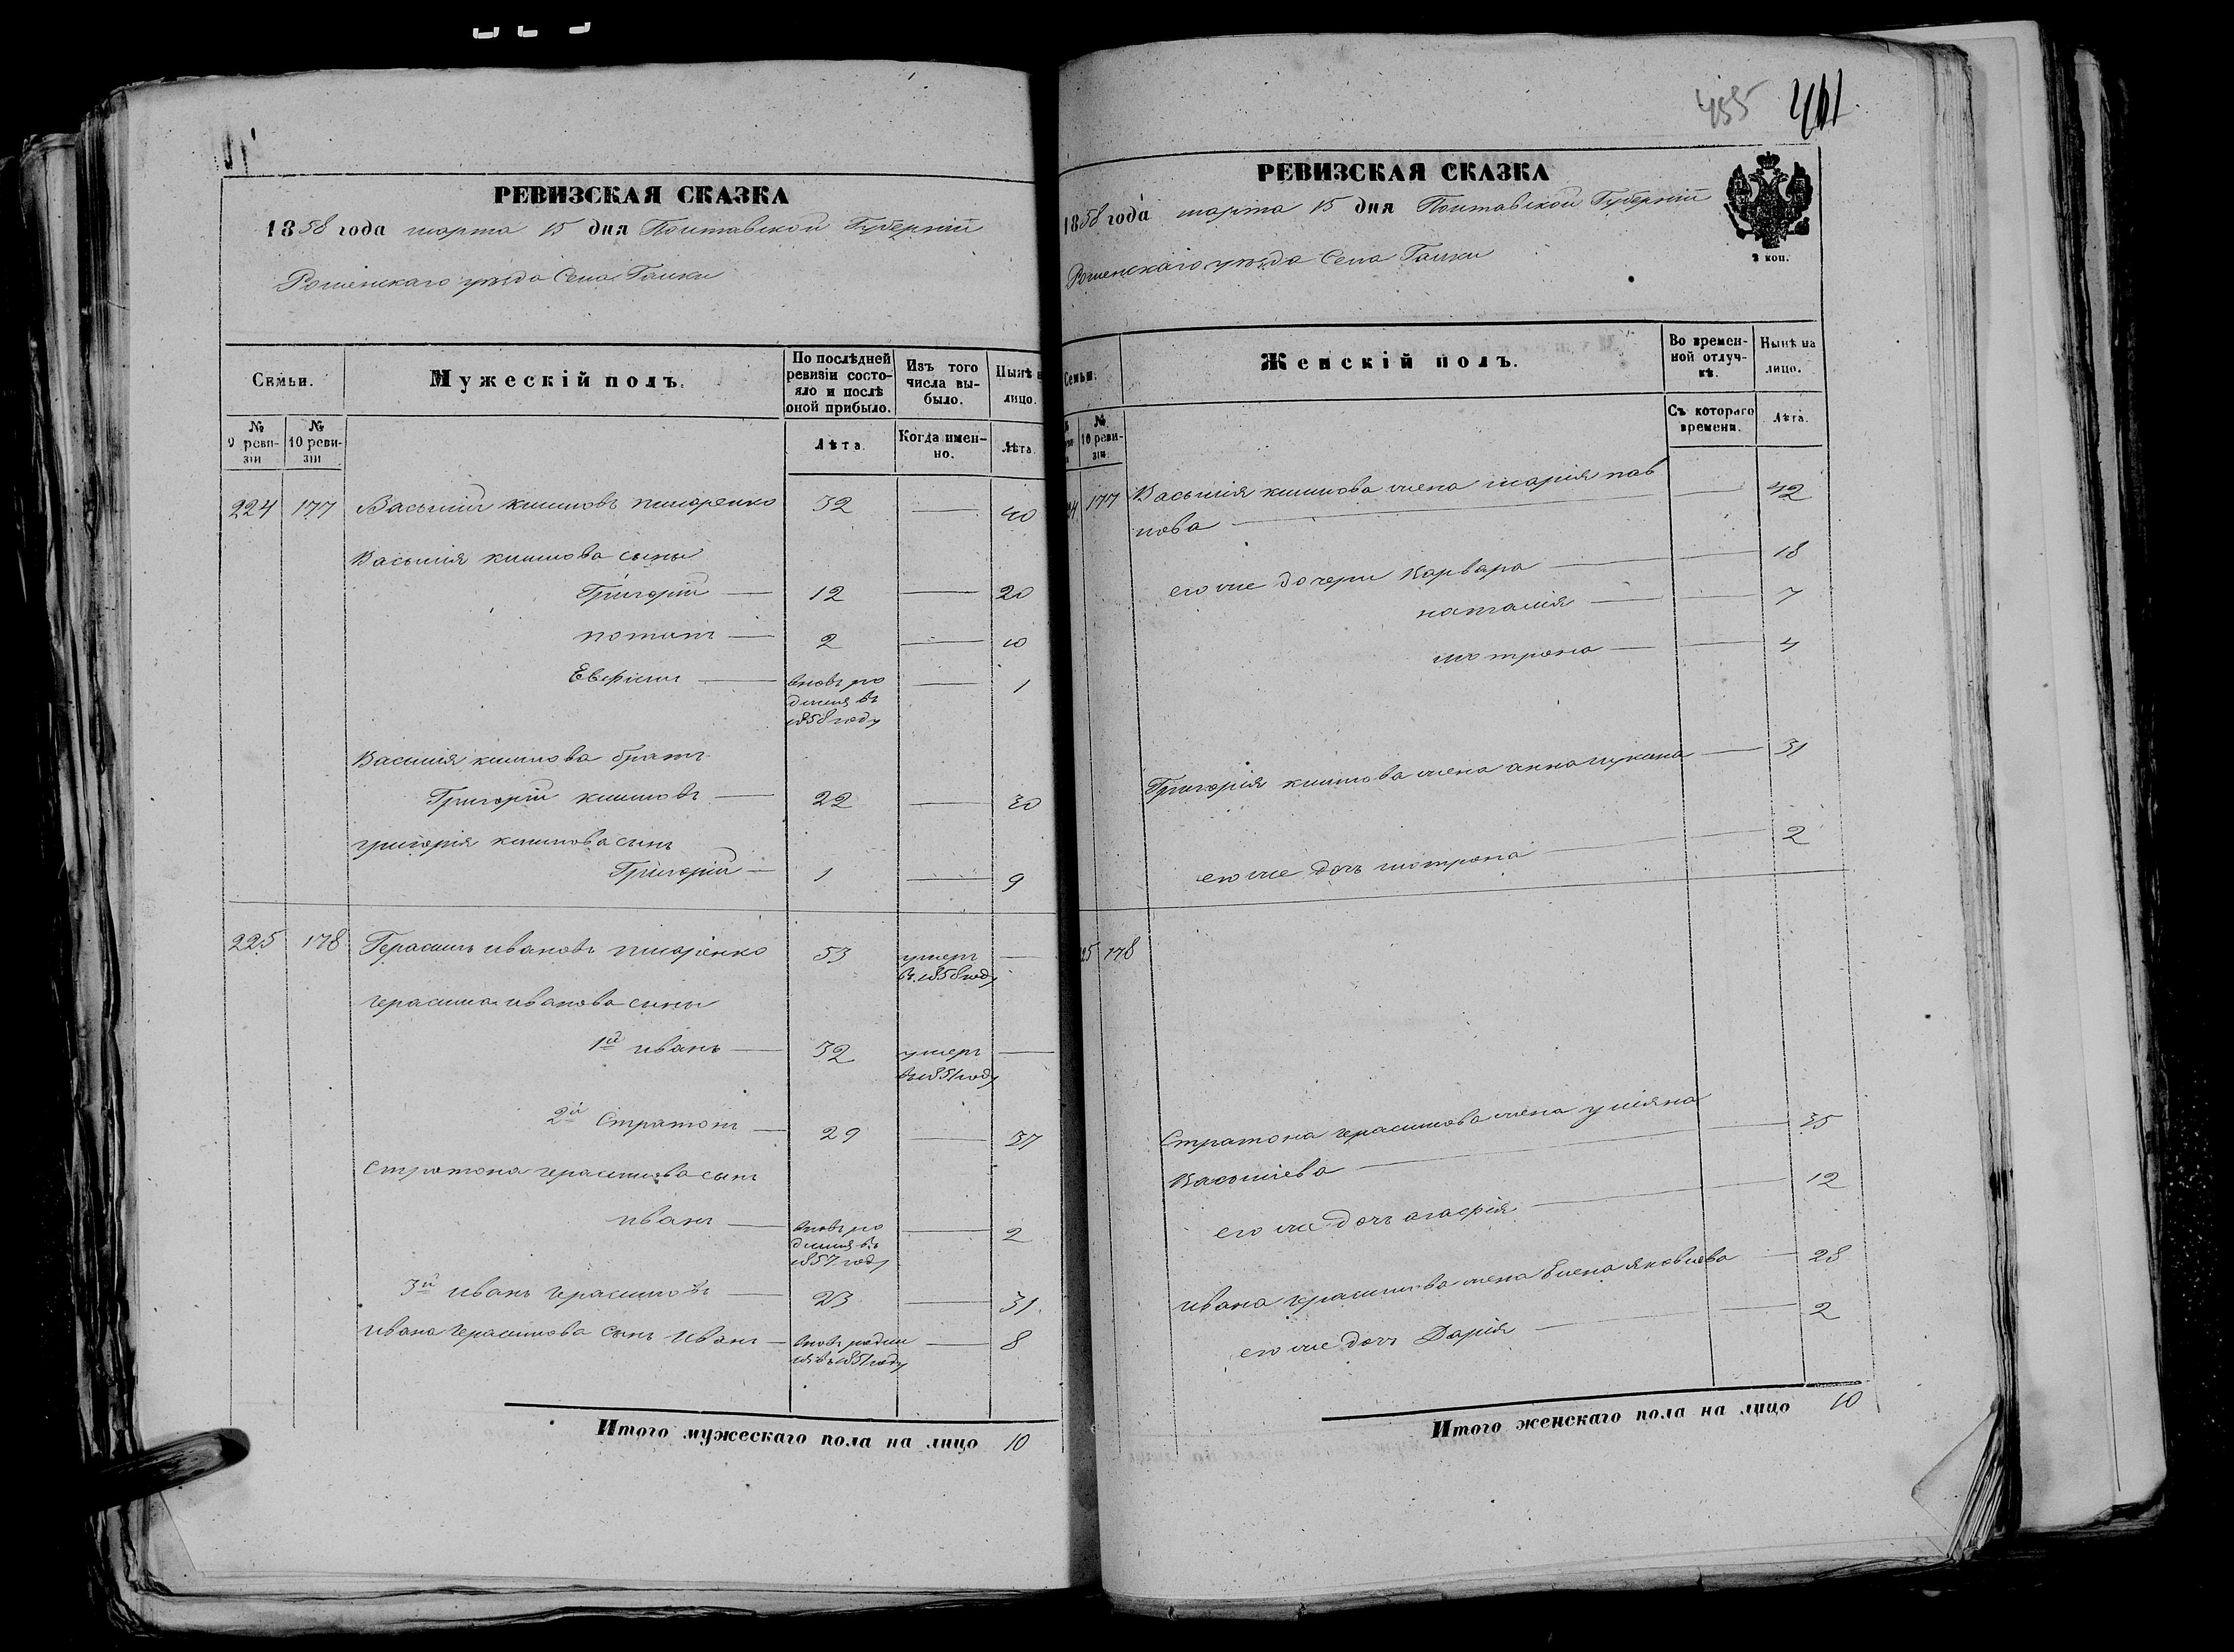 РЕВИЗСКАЯ СКАЗКА
1858 года марта 15 дня Полтавской Губернiи
Роменскаго уѣзда Села Галки
Семьи.
Мужескій полъ.
По послѣдней ревизіи состояло и послѣ оной прибыло.
Изъ того числа выбыло.
Нынѣ на лицо.
№ 9 ревизіи
№ 10 ревизіи
Лѣта.
Когда именно.
Лѣта.
224 177 Василій климовъ писаренко 32 — 40
Василія климова сыны
Григорій — 12 — 20
потапъ — 2 — 10
Евфimъ — вновь родился въ 1858 году — 1
Василія климова братъ
Григорій климовъ — 22 — 30
григорія климова сынъ
Григорій — 1 — 9
225 178 Герасимъ ивановъ писаренко 53 умеръ въ 1858 году —
герасима иванова сыны
1й иванъ — 32 умеръ въ 1851 году —
2й Стратонъ — 29 — 37
Стратона герасимова сынъ
иванъ — вновь родился въ 1857 году — 2
3й иванъ герасимовъ — 23 — 31
ивана герасимова сынъ иванъ — вновь родился въ 1851 году — 8
Итого мужескаго пола на лицо 10
455 461
РЕВИЗСКАЯ СКАЗКА
1858 года марта 15 дня Полтавской Губернiи
Роменскаго уѣзда Села Галки
2 коп.
Семьи.
Женскій полъ.
Во временной отлучкѣ.
Нынѣ на лицо.
№ 10 ревизіи
Съ котораго времени.
Лѣта.
177 Василія климова жена марія павлова — — 42
его же дочери Варвара — — 18
наталія — — 7
мотрона — — 4
Григорія климова жена анна лукина — 31
его же дочь мотрона — — 2
225 178
Стратона герасимова жена уліяна
Васильева — — 35
его же дочь агафія — — 12
ивана герасимова жена Елена яковлева — 28
его же дочь Дарія — — 2
Итого женскаго пола на лицо 10